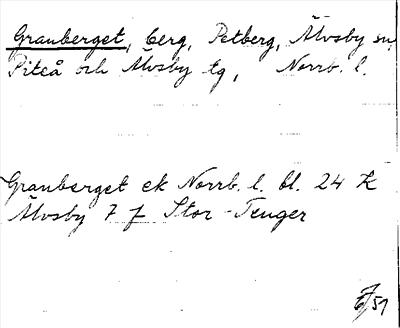 Granberget, berg, Petberg, Älvsby sn,
Piteå och Älvsby tg, Norrb. l.
Granberget ek Norrb. l. bl. 24 K
Älvsby 7 f Stor-Teuger
51